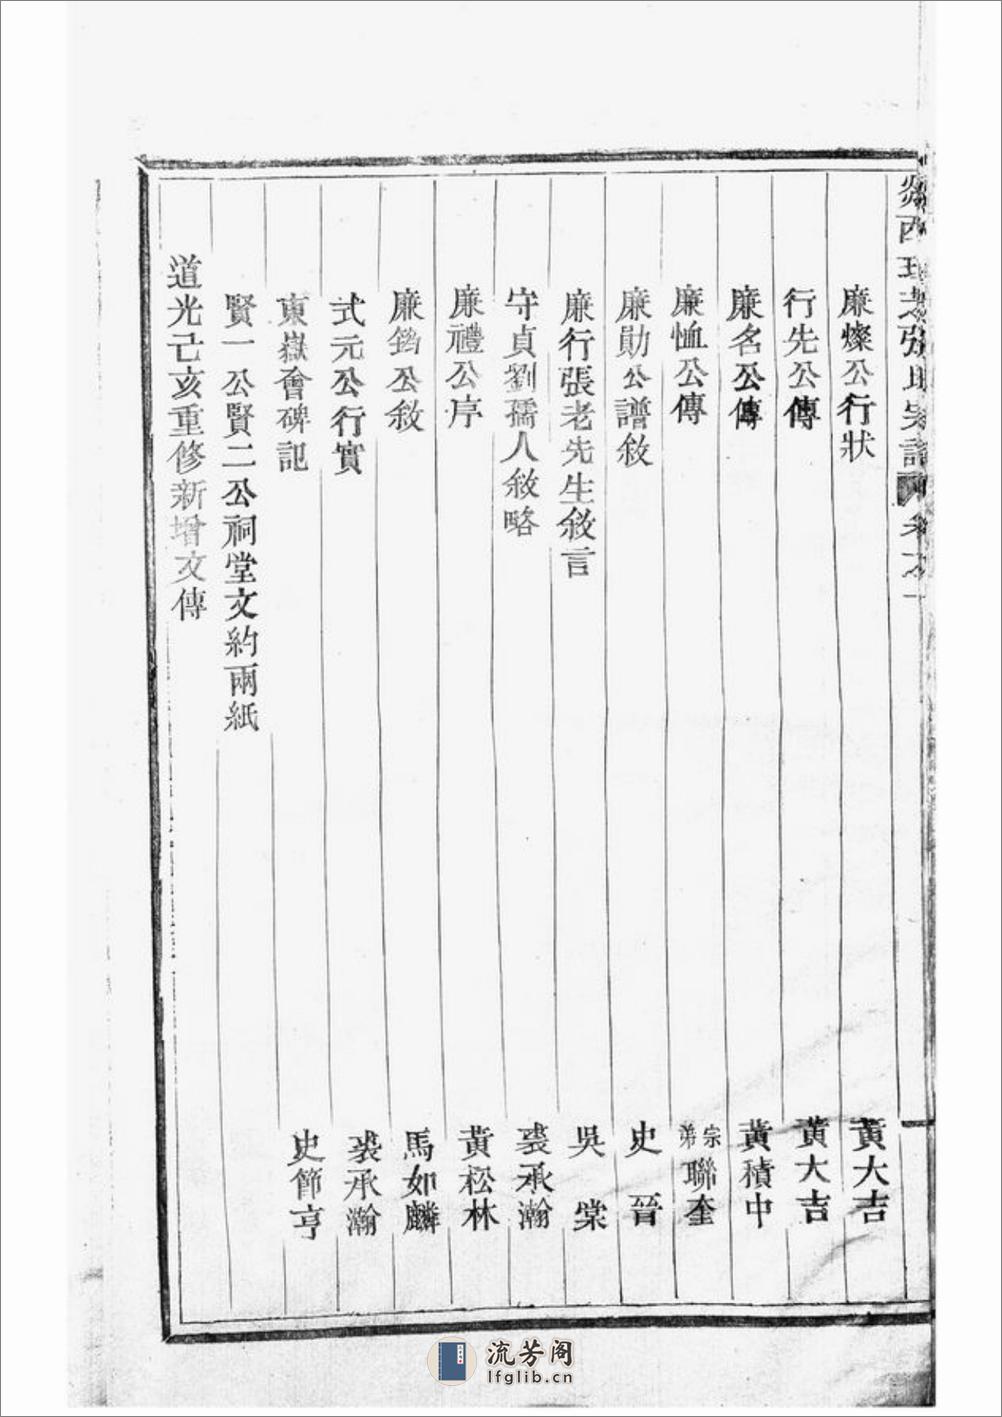 西張氏宗譜 卷之一
廉燦公行狀 黃大吉
行先公傳 黃大吉
廉名公傳 黃積中
廉恤公傳 宗弟聯奎
廉勛公譜敘 史晉
廉行張老先生敘言 吳棠
守貞劉孺人敘略 裘承瀚
廉禮公序 黃松林
廉公敘 馬如麟
式元公行實 裘承瀚
東嶽會碑記 史節亨
賢一公賢二公祠堂文約兩紙
道光己亥重修新增文傳
流芳阁
lfglib.cn